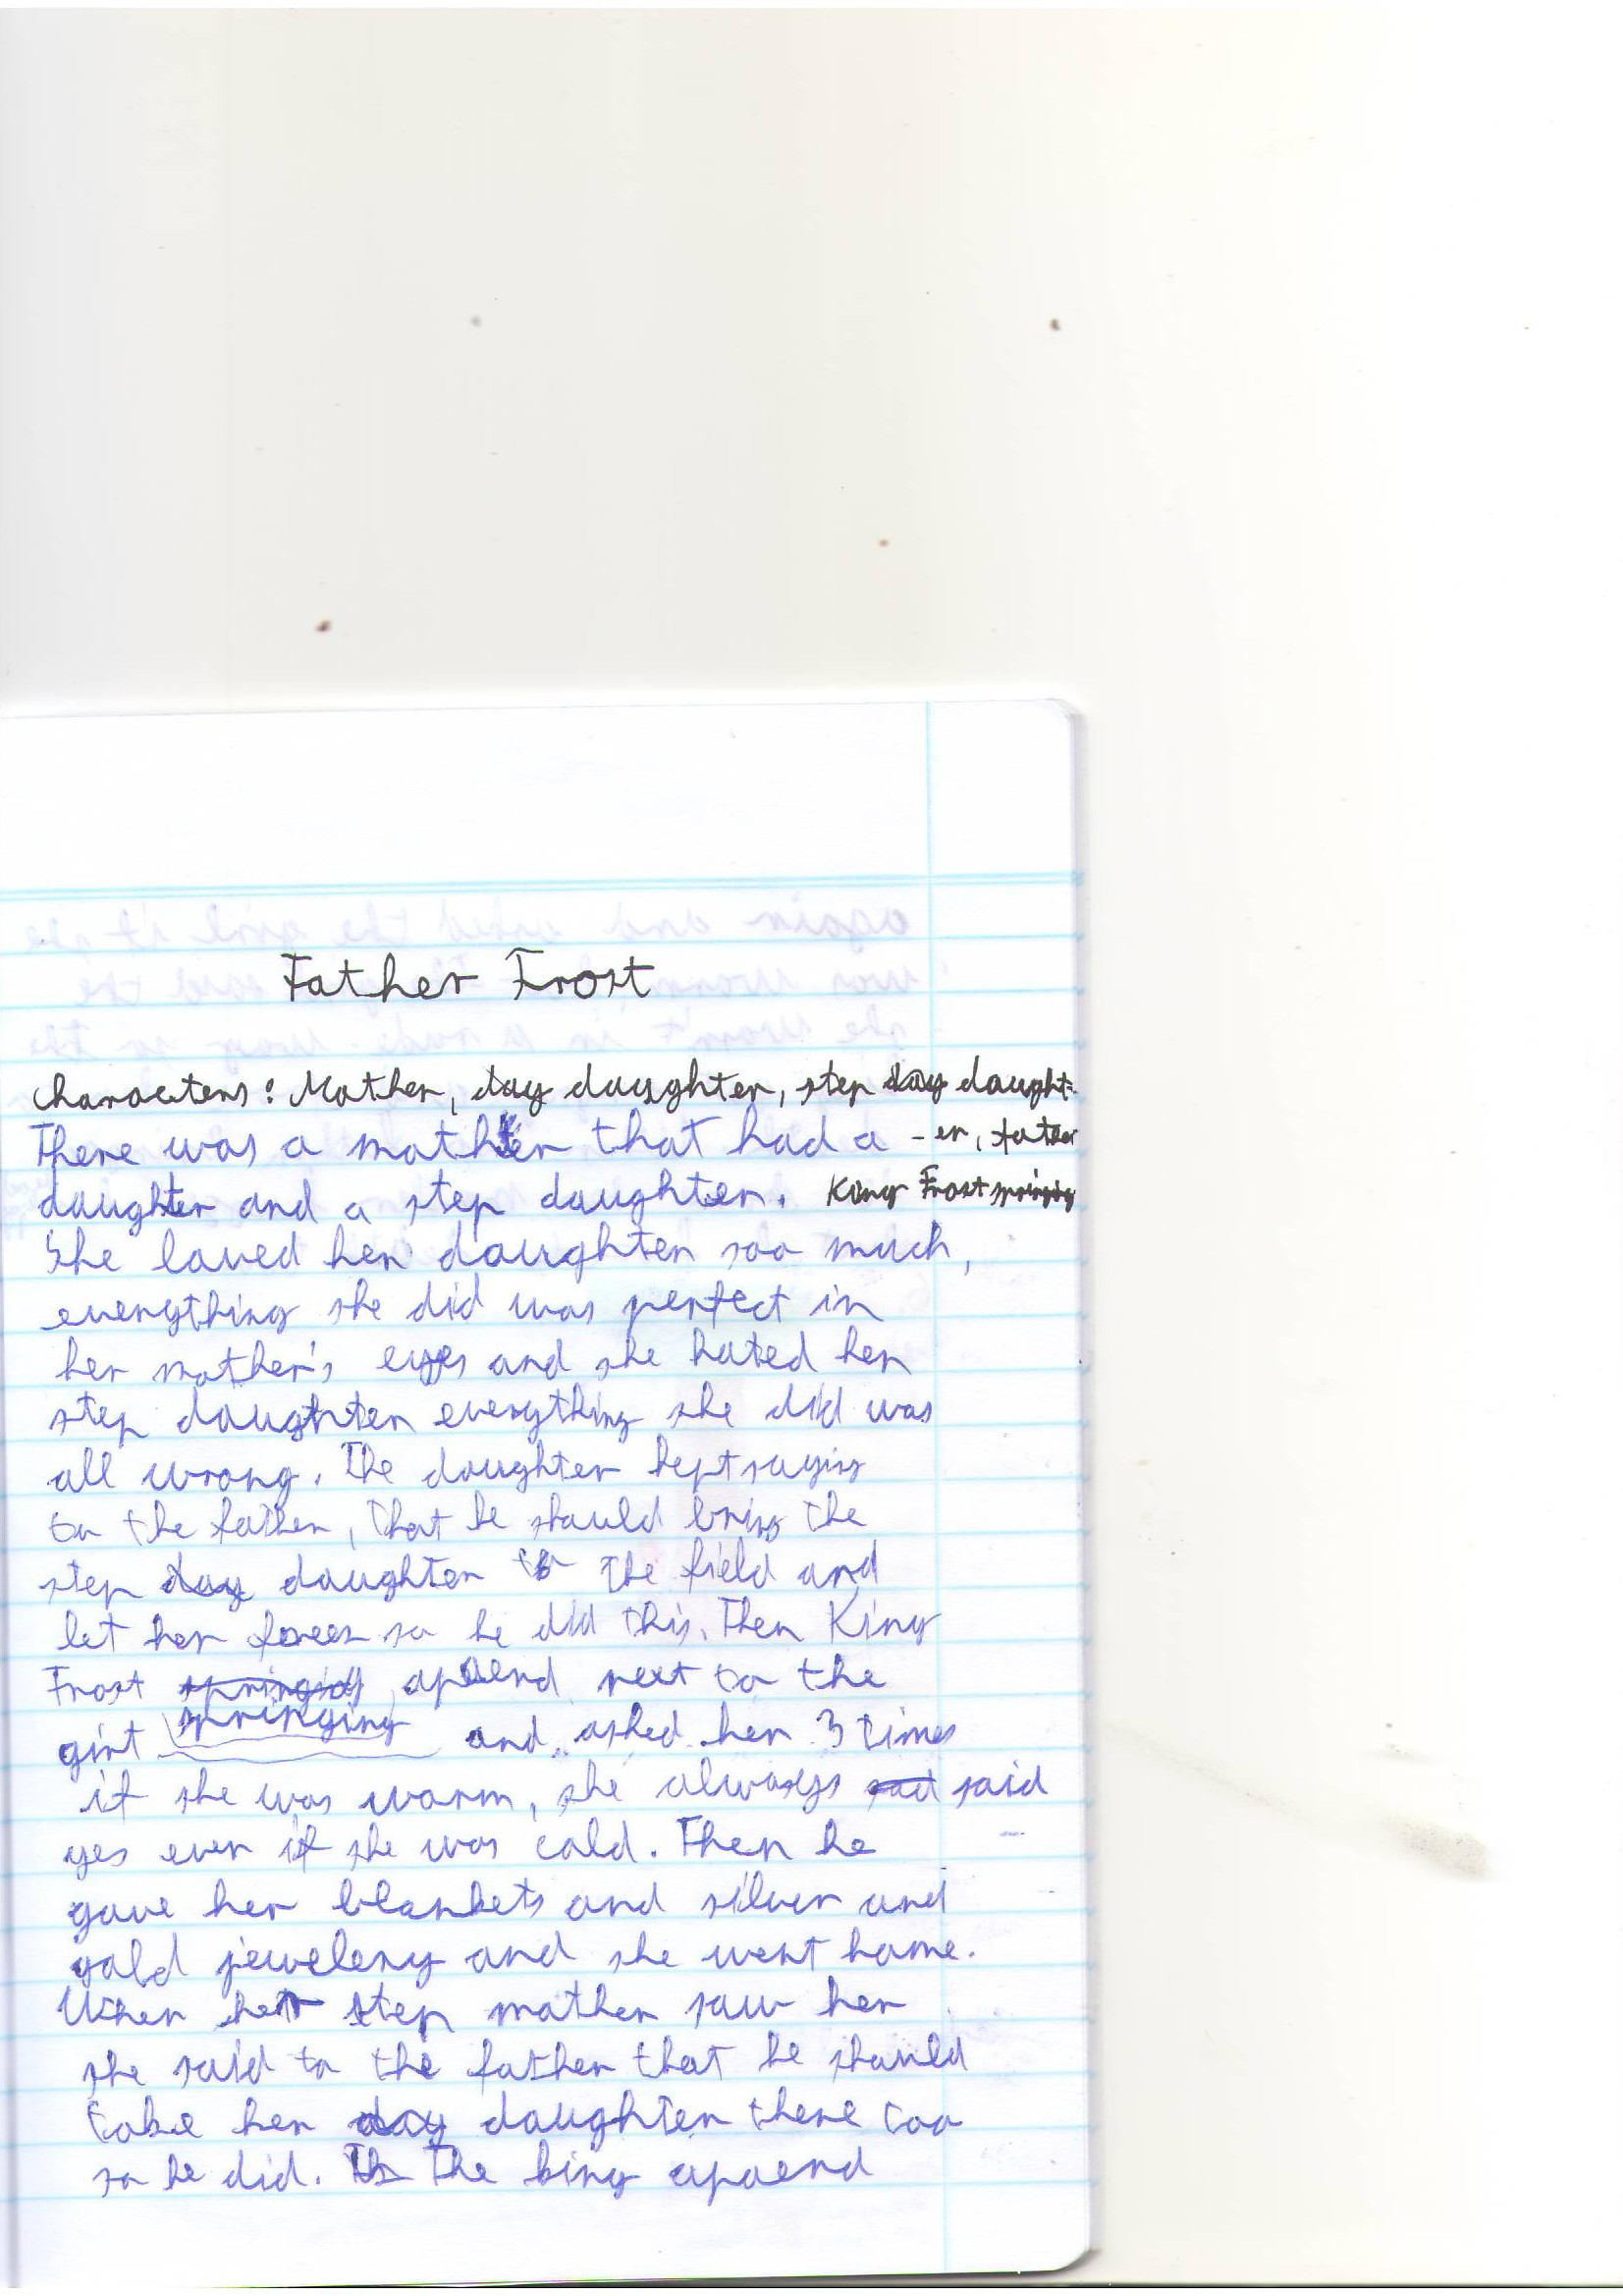 Father Frost
Characters: Mother, day daughter, step day daught-
-er, father
King Frost springing
There was a mother that had a
daughter and a step daughter.
She loved her daughter soo much,
everything she did was perfect in
her mother's eyes and she hated her
step daughter everything she did was
all wrong. The daughter kept saying
to the father, that he should bring the
step day daughter to the field and
let her freez so he did this. Then King
Frost springing apaerd next to the
girl springing and asked her 3 times
if she was warm, she always sad said
yes even if she was cold. Then he
gave her blankets and silver and
gold jewelery and she went home.
When her step mother saw her
she said to the father that he should
take her day daughter there too
so he did. Th The king apaerd